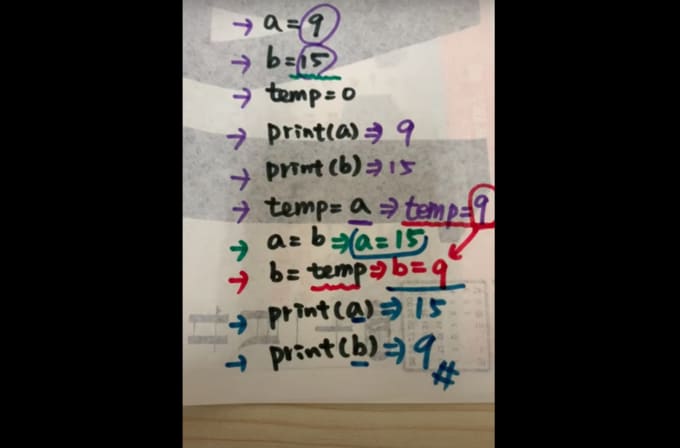 → a = 9
→ b = 15
→ temp = 0
→ print(a) ⇒ 9
→ print(b) ⇒ 15
→ temp = a ⇒ temp = 9
→ a = b ⇒ (a = 15)
→ b = temp ⇒ b = 9
→ print(a) ⇒ 15
→ print(b) ⇒ 9 #